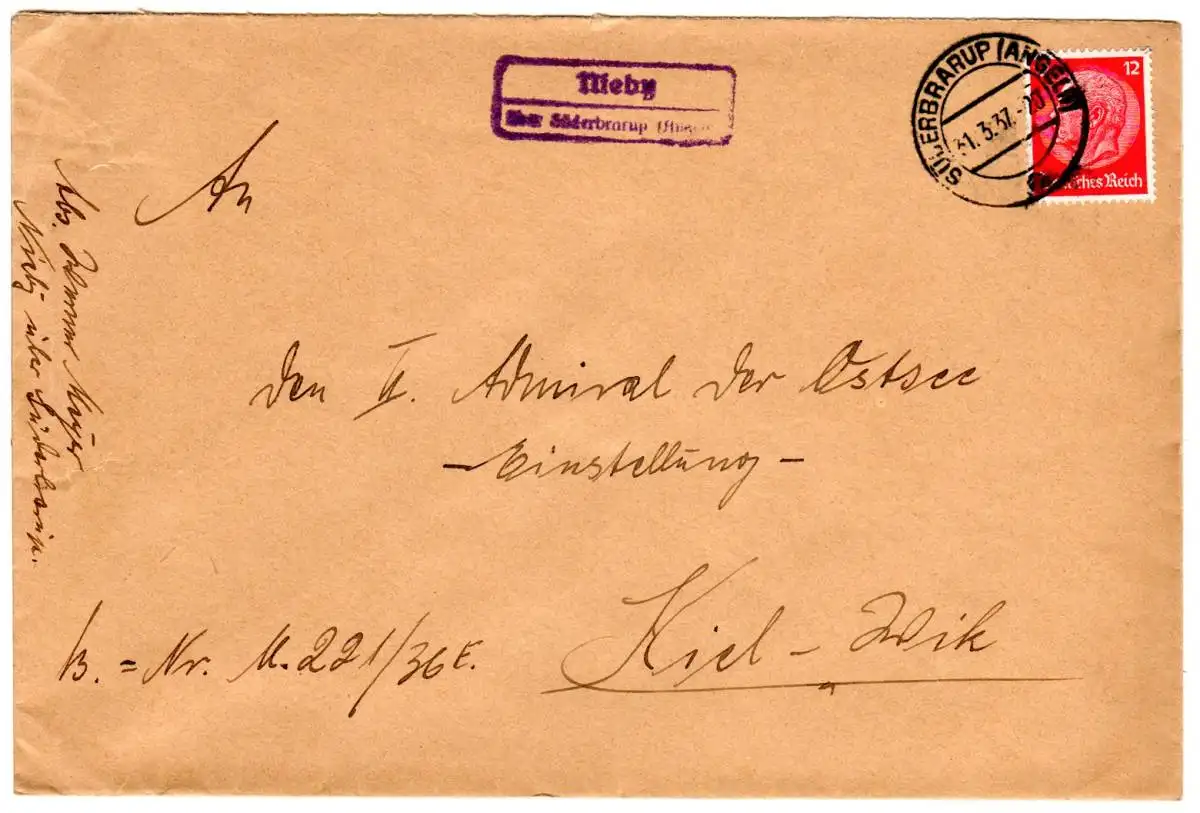 Nieby
Süderbrarup (Angeln)
SÜDERBRARUP (ANGELN)
31.3.37.-20
12
Deutsches Reich
An
den II. Admiral der Ostsee
- Einstellung -
Kiel - Wik
B. = Nr. M. 221/36 E.
Abs. Meyer
Nieby über Süderbrarup.